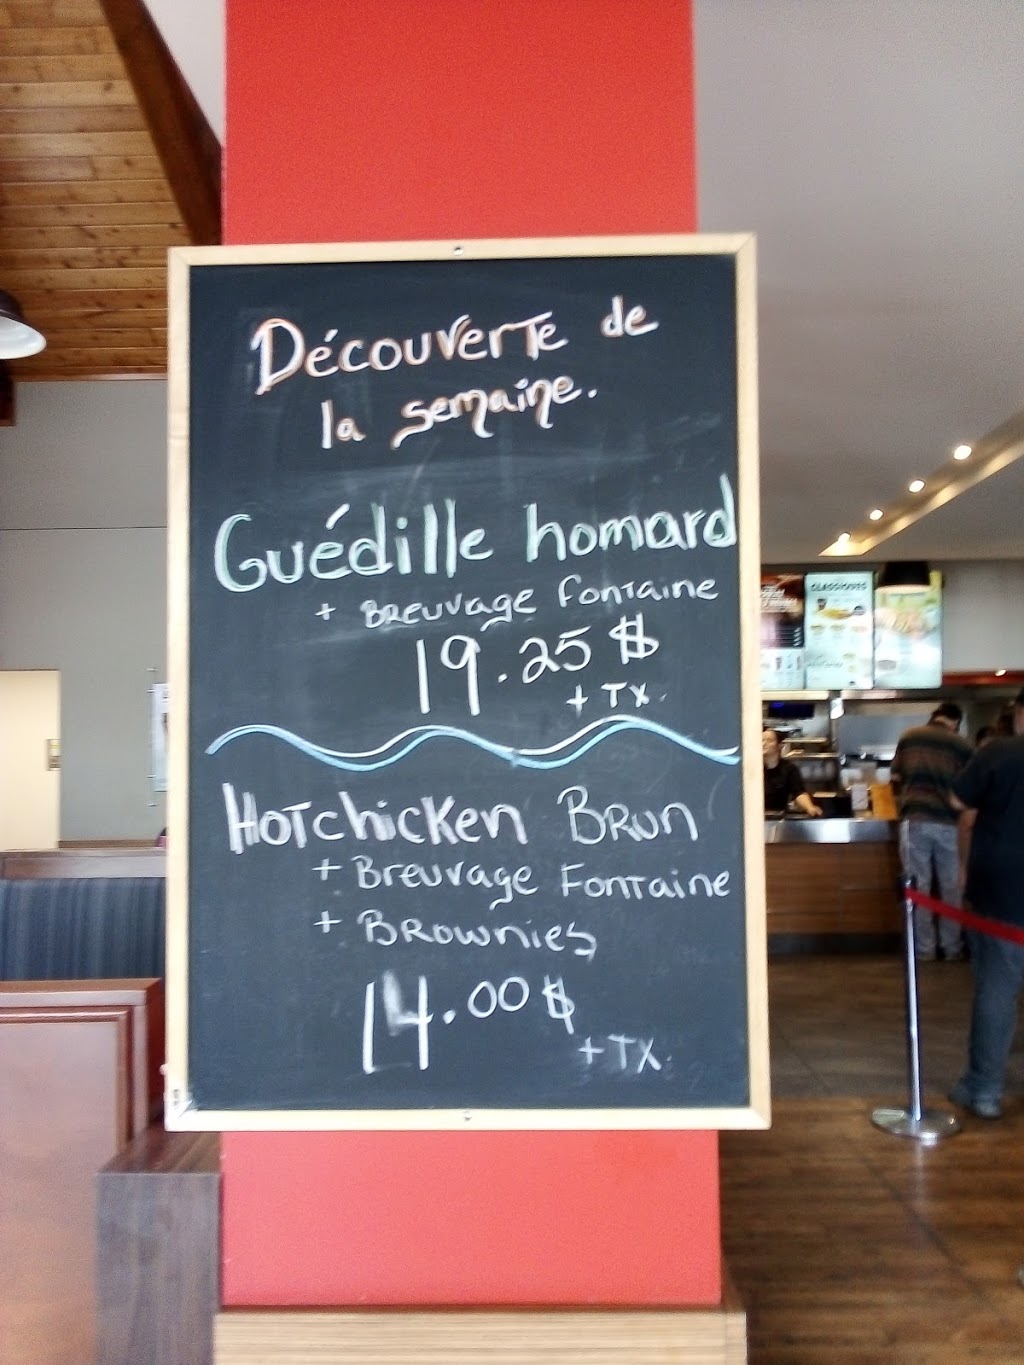 Découverte de
la semaine.
Guédille homard
+ Breuvage fontaine
19.25 $
+ TX.
Hotchicken Brun
+ Breuvage Fontaine
+ Brownies
14.00 $
+ TX.
CLASSIQUES